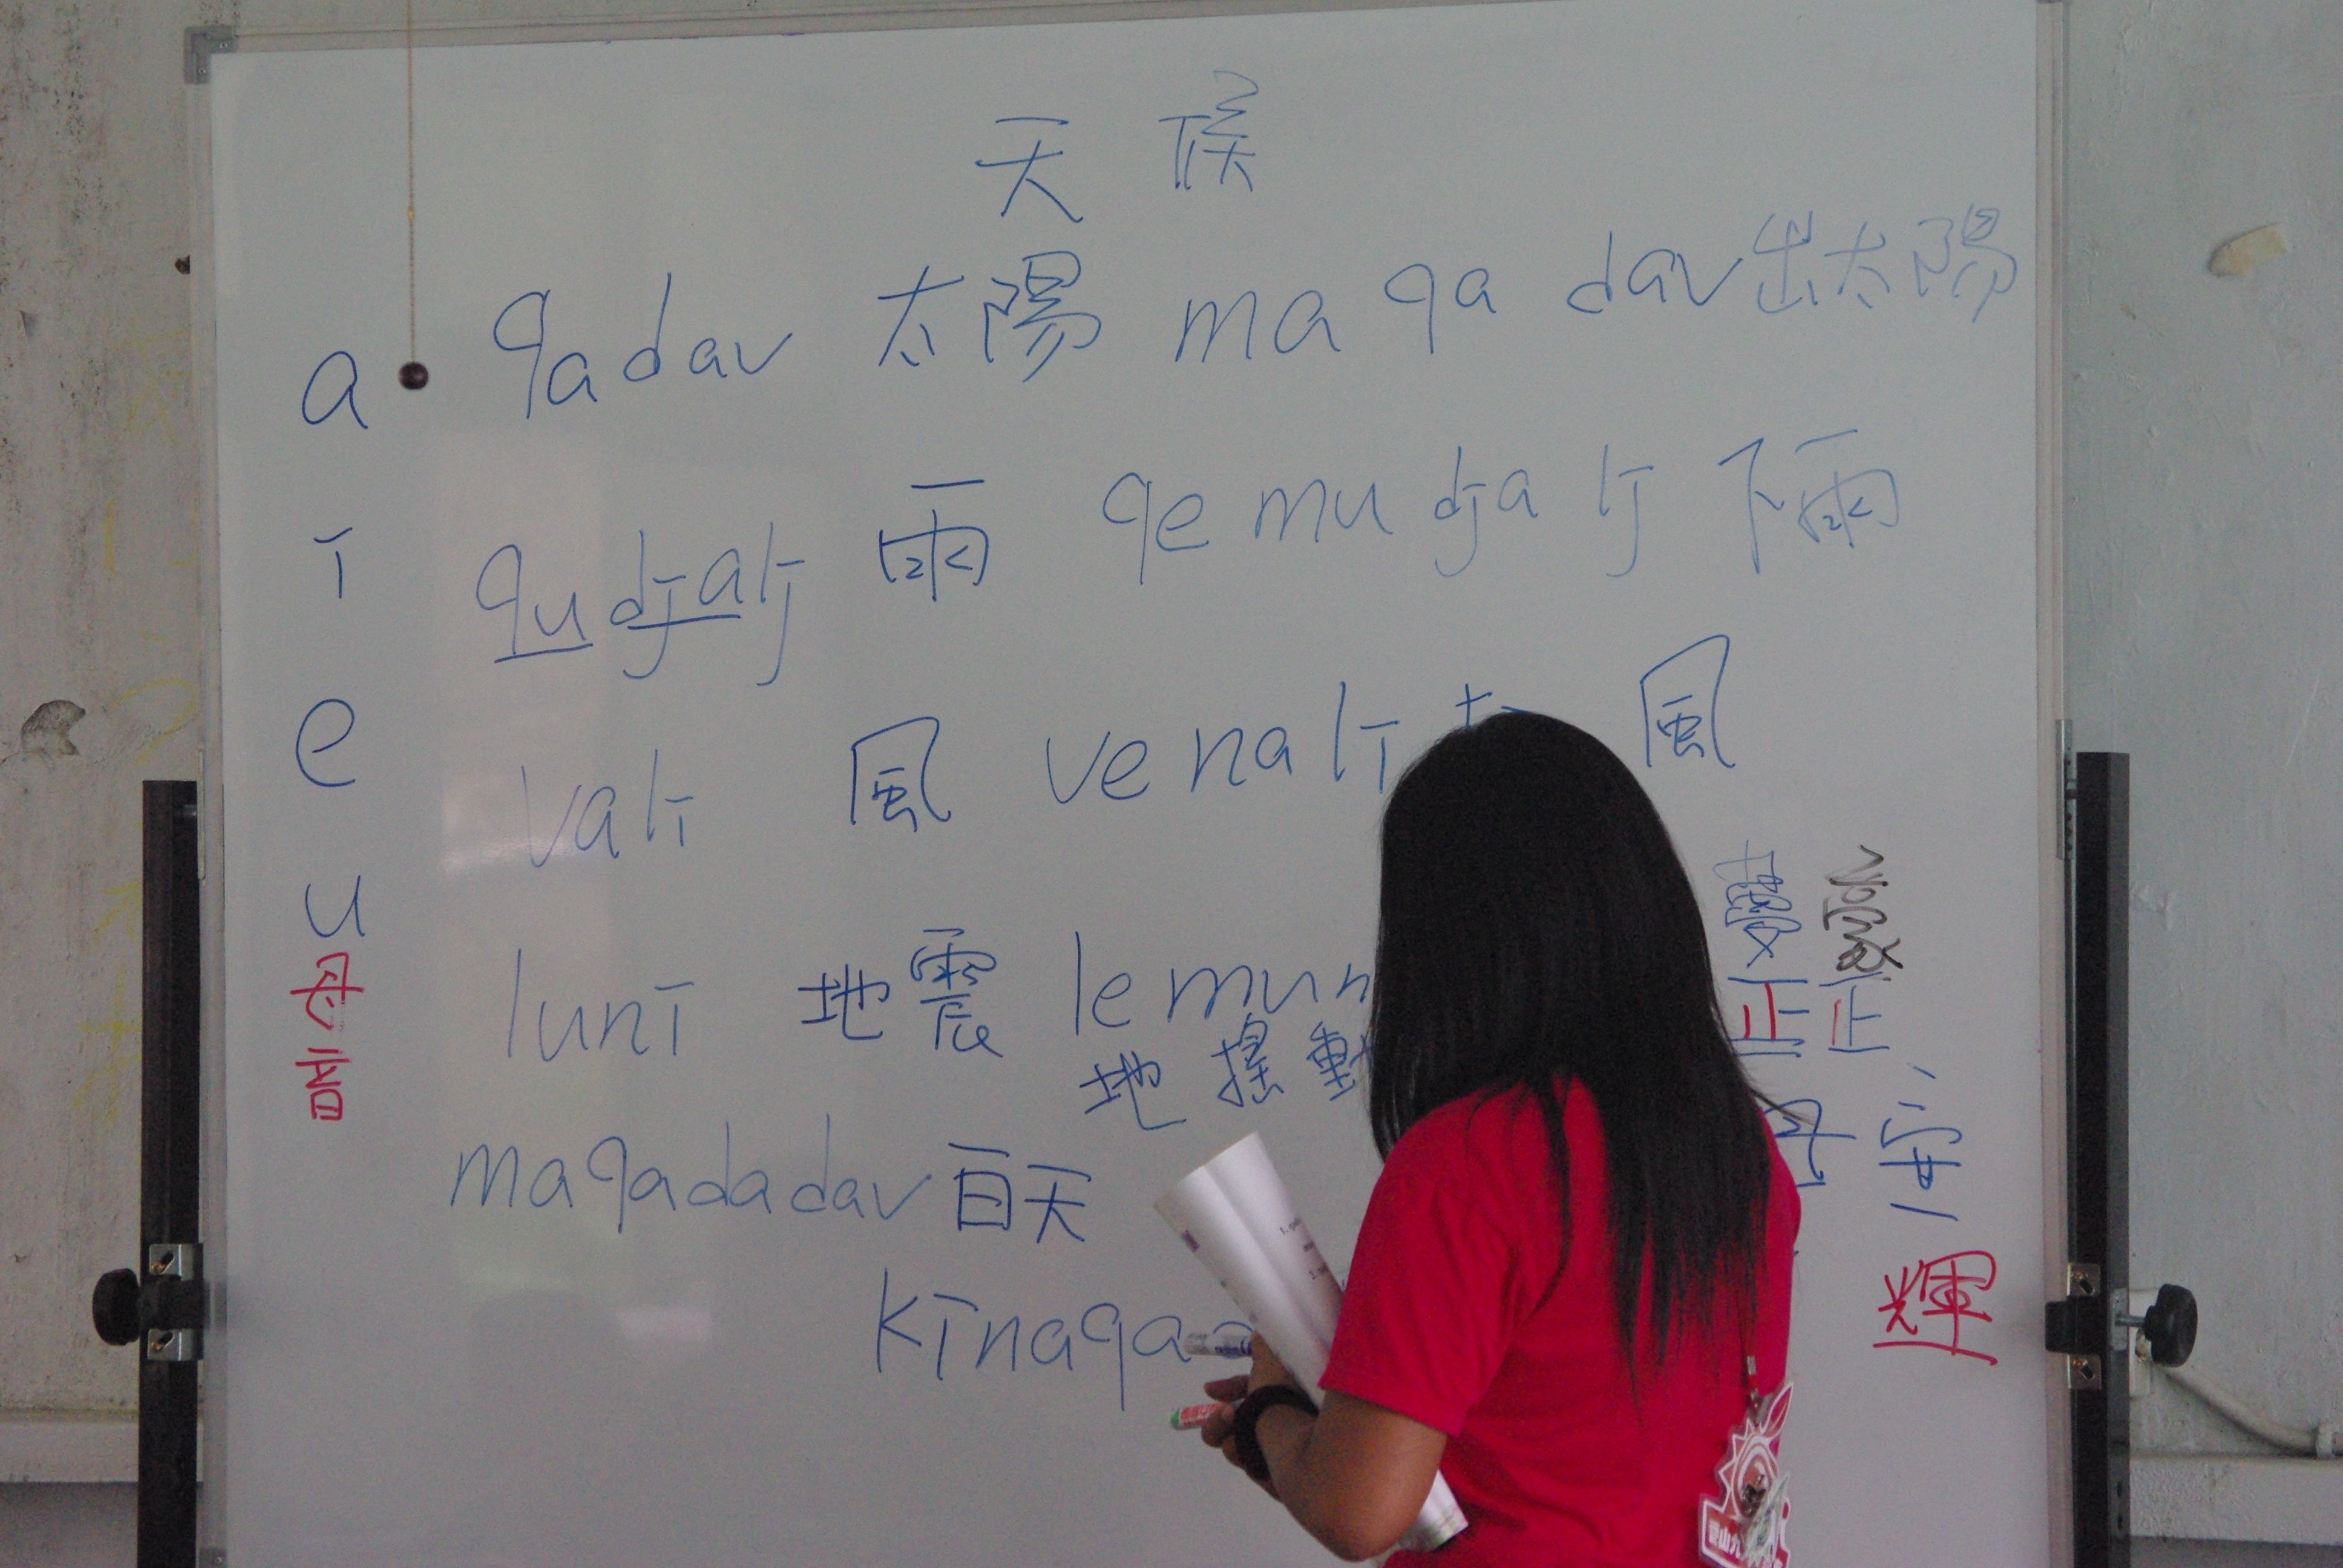 天候
a qadav 太陽 maqadav 出太陽
i qudjalj 雨 qemudjalj 下雨
e vali 風 venali 風
u luni 地震 lemun
地搖動
母音
maqadadav 百天
kinaqa
正正
輝